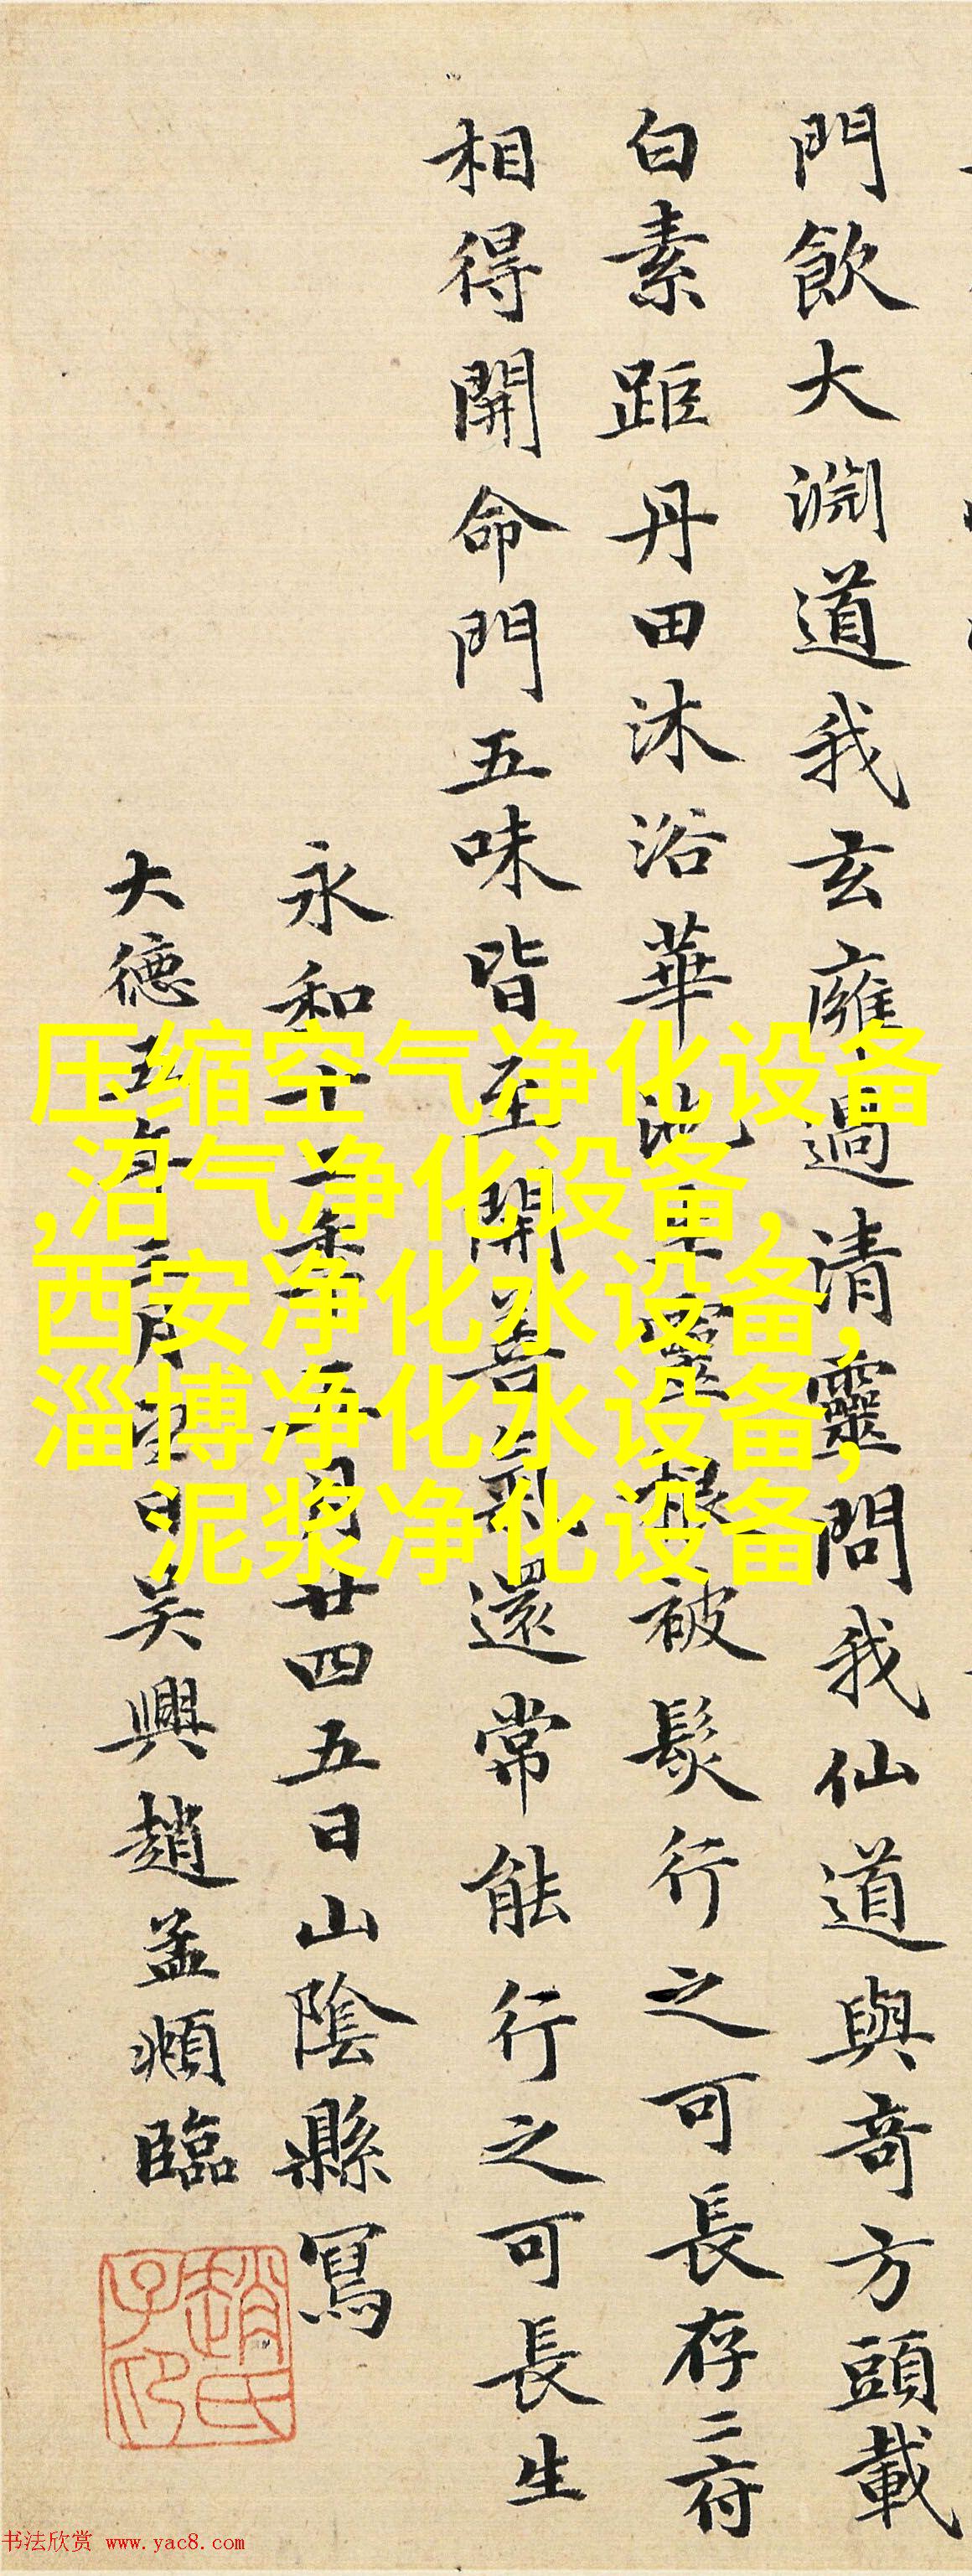 門飲大淵道我玄廱過清靈問我仙道與奇方頭載
白素距丹田沐浴華池生靈根被髮行之可長存二府
相得開命門五味皆至開善氣還常能行之可長生
永和十二年五月廿四五日山陰縣寫
大德五年三月望日吴興趙孟頫臨
趙氏子卬
压缩空气净化设备
,沼气净化设备,
西安净化水设备,
淄博净化水设备,
泥浆净化设备
书法欣赏 www.yac8.com